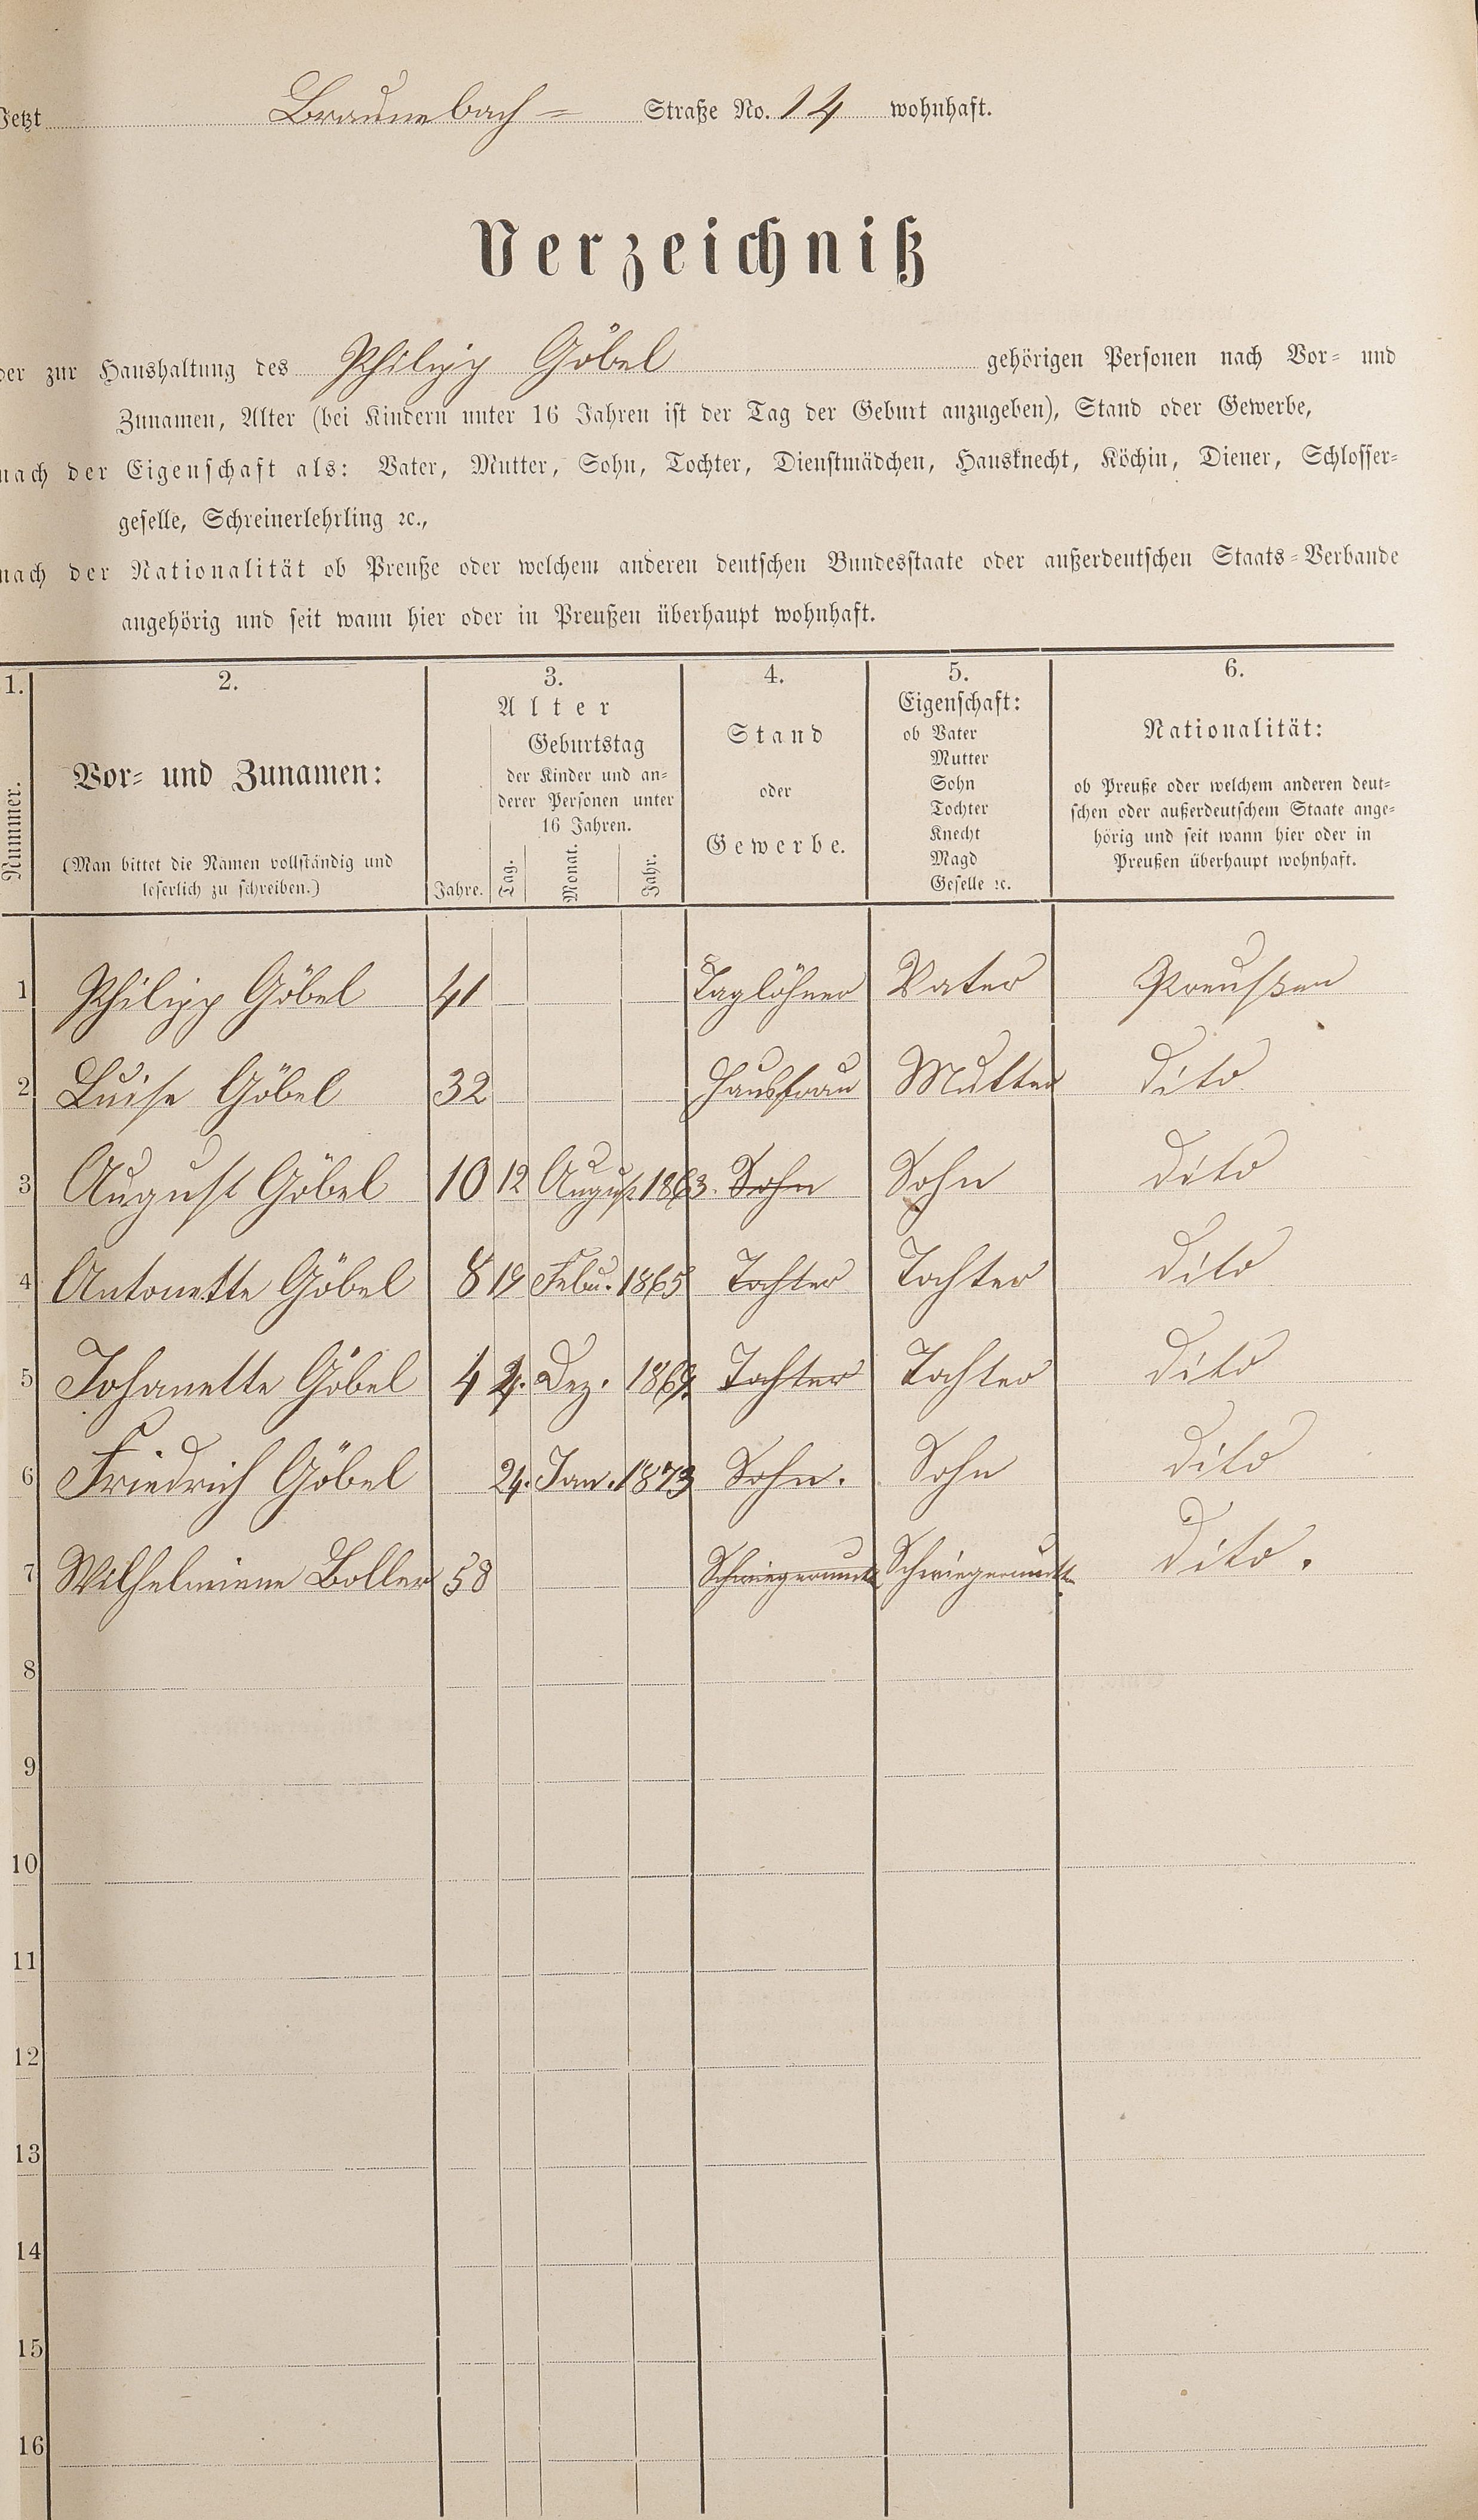 Jetzt Braunebach= Straße No. 14 wohnhaft.
Verzeichniß
der zur Haushaltung des Philipp Göbel gehörigen Personen nach Vor= und
Zunamen, Alter (bei Kindern unter 16 Jahren ist der Tag der Geburt anzugeben), Stand oder Gewerbe,
nach der Eigenschaft als: Vater, Mutter, Sohn, Tochter, Dienstmädchen, Hausknecht, Köchin, Diener, Schlosser=
geselle, Schreinerlehrling ꝛc.,
nach der Nationalität ob Preuße oder welchem anderen deutschen Bundesstaate oder außerdeutschen Staats=Verbande
angehörig und seit wann hier oder in Preußen überhaupt wohnhaft.
1.
Nummer.
2.
Vor= und Zunamen:
(Man bittet die Namen vollständig und
leserlich zu schreiben.)
3.
Alter
Jahre.
Geburtstag
der Kinder und an=
derer Personen unter
16 Jahren.
Tag. Monat. Jahr.
4.
Stand
oder
Gewerbe.
5.
Eigenschaft:
ob Vater
Mutter
Sohn
Tochter
Knecht
Magd
Geselle ꝛc.
6.
Nationalität:
ob Preuße oder welchem anderen deut=
schen oder außerdeutschem Staate ange=
hörig und seit wann hier oder in
Preußen überhaupt wohnhaft.
1 Philipp Göbel 41 Taglöhner Vater Preußen
2 Luise Göbel 32 Hausfrau Mutter dito
3 August Göbel 10 12 August 1863. Sohn Sohn dito
4 Antonette Göbel 8 19 Febu. 1865 Tochter Tochter dito
5 Johanette Göbel 4 Dez. Tochter Tochter dito
6 Friedrich Göbel 24. Jan. 1873 Sohn. Sohn dito
7 Wilhelmiene Boller 58 Schwiegermutt Schwiegermutt dito.
8
9
10
11
12
13
14
15
16